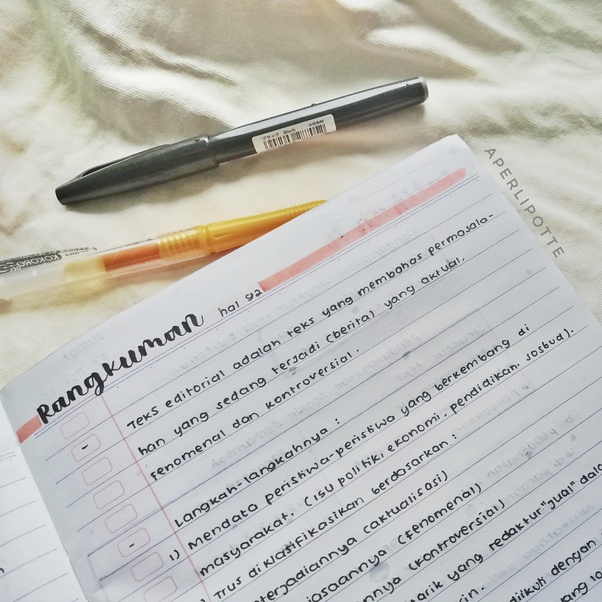 ブラック Black
KOKORO
APERLIPOTTE
Rangkuman hal 92
Teks editorial adalah teks yang membahas permasala-
han yang sedang terjadi (berita) yang aktual,
fenomenal dan kontroversial.
- Langkah-langkahnya :
1) Mendata peristiwa-peristiwa yang berkembang di
masyarakat. (isu politik, ekonomi, pendidikan, sosbud).
Trus diklasifikasikan berdasarkan :
terjadiannya (aktualisasi)
(fenomenal)
(kontroversial)
yang redaktur "jual"
diikuti dengan